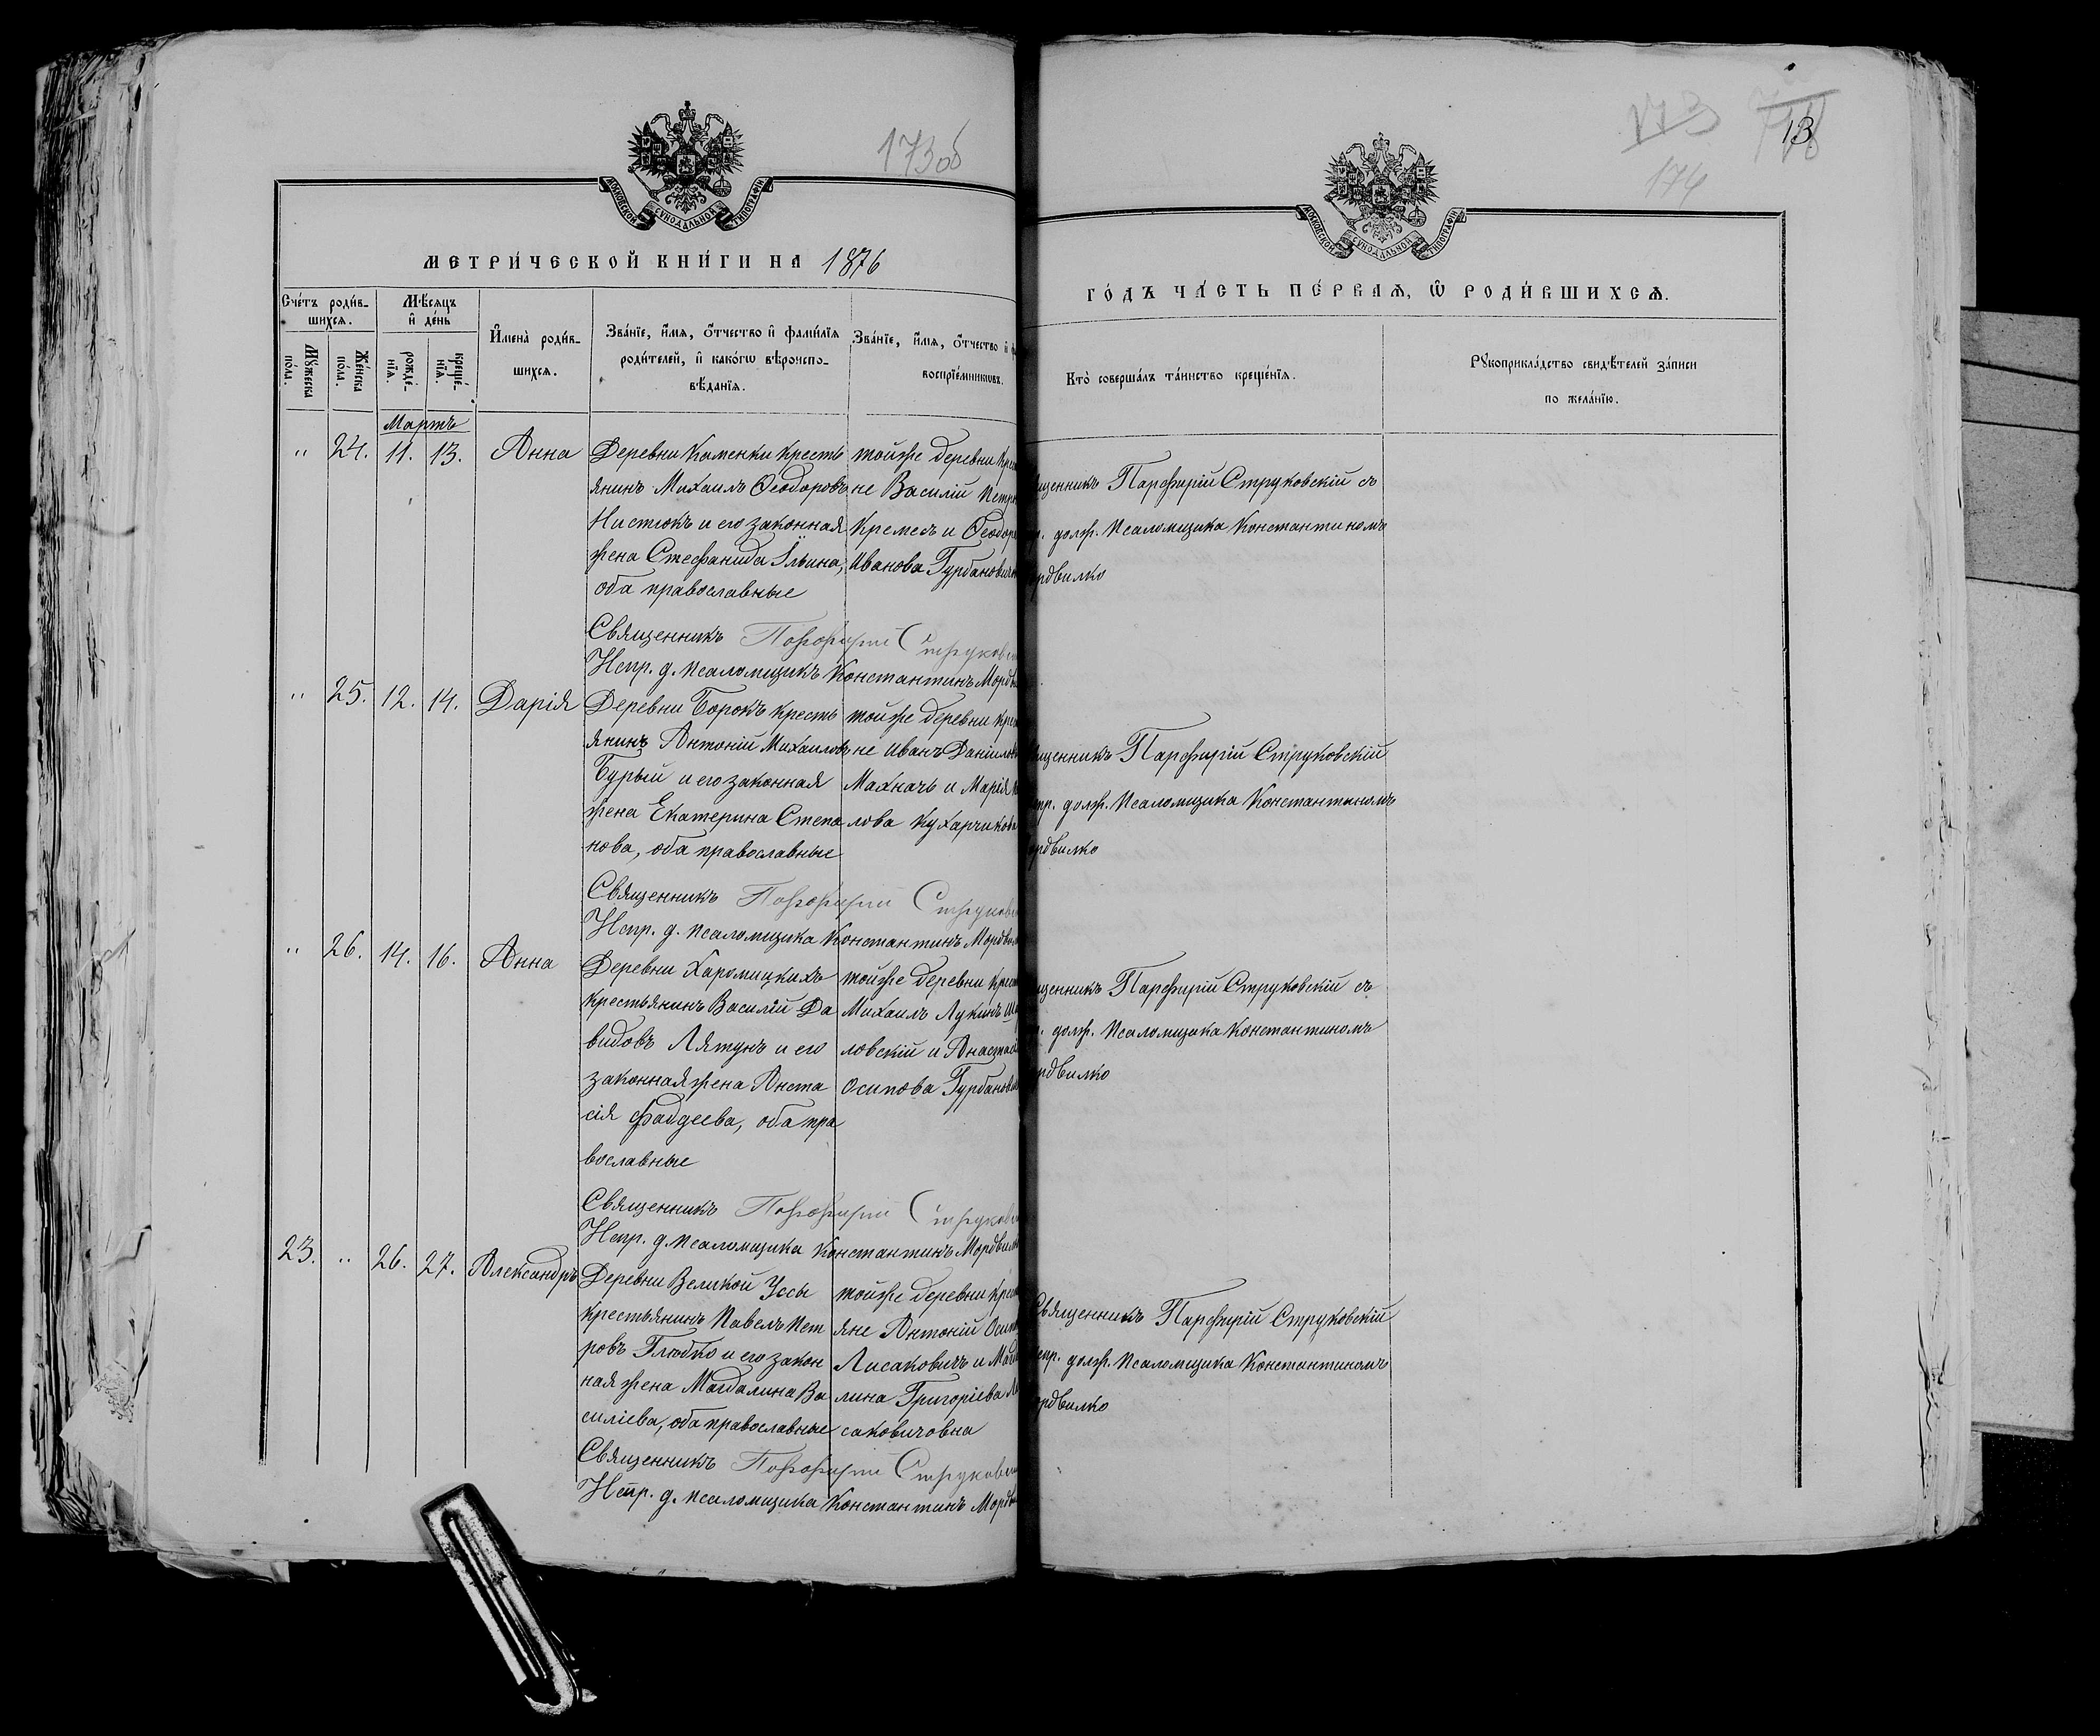 173об
МОСКОВСКОЙ СѴНОДАЛЬНОЙ ТИПОГРАФІИ
МЕТРИ́ЧЕСКОЙ КНИ́ГИ НА 1876
Сче́тъ роди́в-
шихсѧ.
Мѣ́сѧцъ
и҆ де́нь
И҆мена̀ роди́в-
шихсѧ.
Зва́нїе, и҆́мѧ, ѻ҆́тчество и҆ фами́лїѧ
роди́телей, и҆ како́гѡ вѣроиспо-
вѣ́данїѧ.
Зва́нїе, и҆́мѧ, ѻ҆́тчество и҆
воспрїе́мникѡвъ.
Мꙋ́жеска
по́ла.
Же́нска
по́ла.
рожде́-
нїѧ.
креще́-
нїѧ.
Мартъ
" 24. 11. 13. Анна
Деревни Каменки кресть
янинъ Михаилъ Ѳеодоровъ
Нистюкъ и его законная
жена Стефанида Ильина,
оба православные
тойже деревни
не Василій
Кремесь и
Иванова
Священникъ Порфирій
Испр. д. псаломщикъ Константинъ
" 25. 12. 14. Дарія
Деревни Борокъ кресть
янинъ Антоній Михаиловъ
Бурый и его законная
жена Екатерина Степа
нова, оба православные
тойже деревни
не Иванъ
Махначъ и Марія
лова
Священникъ Порфирій
Испр. д. псаломщика Константинъ
" 26. 14. 16. Анна
Деревни Харомицкихъ
крестьянинъ Василій Да
видовъ Лятунъ и его
законная жена Анста
сія Фаддеева, оба пра
вославные
тойже деревни
Михаилъ Лукинъ
ловскій и
Осипова
Священникъ Порфирій
Испр. д. псаломщика Константинъ
23. " 26. 27. Александръ
Деревни Великой Уссы
крестьянинъ Павелъ Пет
ровъ Глюбко и его закон
ная жена Магдалина Ва
силіева, оба православные
тойже деревни
яне Антоній
Лисаковичъ и
лина Григоріева
саковичовна
Священникъ Порфирій
Испр. д. псаломщика Константинъ
173
174
13
МОСКОВСКОЙ СѴНОДАЛЬНОЙ ТИПОГРАФІИ
ГО́ДЪ ЧА́СТЬ ПЕ́РВАѦ, Ѡ҆ РОДИ́ВШИХСѦ.
Кто̀ соверша́лъ та́инство креще́нїѧ.
Рꙋкоприкла́дство свидѣ́телей за́писи
по жела́нїю.
щенникъ Парфирій Струковскій съ
долж. Псаломщика Константиномъ
рдвилко
щенникъ Парфирій Струковскій
пр. долж. Псаломщика Константиномъ
ордвилко
щенникъ Парфирій Струковскій съ
долж. Псаломщика Константиномъ
рдвилко
Священникъ Парфирій Струковскій
спр. долж. Псаломщика Константиномъ
ордвилко